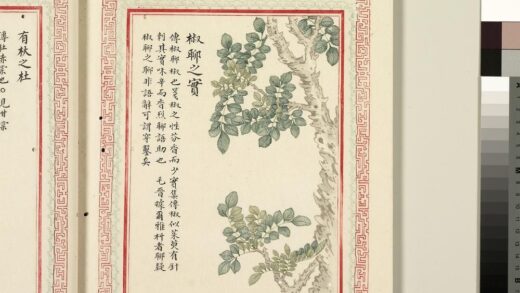 椒聊之實
傳椒聊椒也箋椒之性芬香而少實集傳椒似茱萸有針
刺其實味辛而香烈聊語助也 毛晉據爾雅朻者聊疑
椒聊之聊非語辭可謂穿鑿矣
有杕之杜
傳杜赤棠也○見甘棠